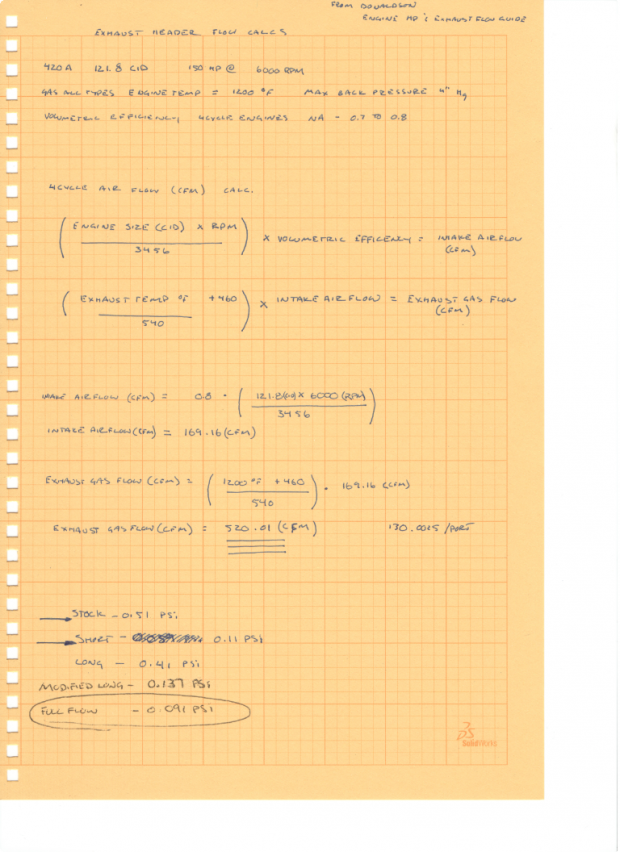 FROM DONALDSON
ENGINE HP & EXHAUST FLOW GUIDE
EXHAUST HEADER FLOW CALCS
420A 121.8 CID 150 HP @ 6000 RPM
GAS ALL TYPES ENGINE TEMP = 1200 °F MAX BACK PRESSURE 4" Hg
VOLUMETRIC EFFICIENCY 4CYCLE ENGINES NA - 0.7 TO 0.8
4CYCLE AIR FLOW (CFM) CALC.
( ENGINE SIZE (CID) x RPM / 3456 ) x VOLUMETRIC EFFICENCY = INTAKE AIRFLOW (CFM)
( EXHAUST TEMP °F +460 / 540 ) x INTAKE AIRFLOW = EXHAUST GAS FLOW (CFM)
INTAKE AIRFLOW (CFM) = 0.8 · ( 121.8 x 6000 (RPM) / 3456 )
INTAKE AIRFLOW (CFM) = 169.16 (CFM)
EXHAUST GAS FLOW (CFM) = ( 1200 °F +460 / 540 ) · 169.16 (CFM)
EXHAUST GAS FLOW (CFM) = 520.01 (CFM) 130.0025 /PORT
STOCK - 0.51 PSi
SHORT - 0.11 PSi
LONG - 0.41 PSi
MODIFIED LONG - 0.137 PSi
FULL FLOW - 0.091 PSI
SolidWorks